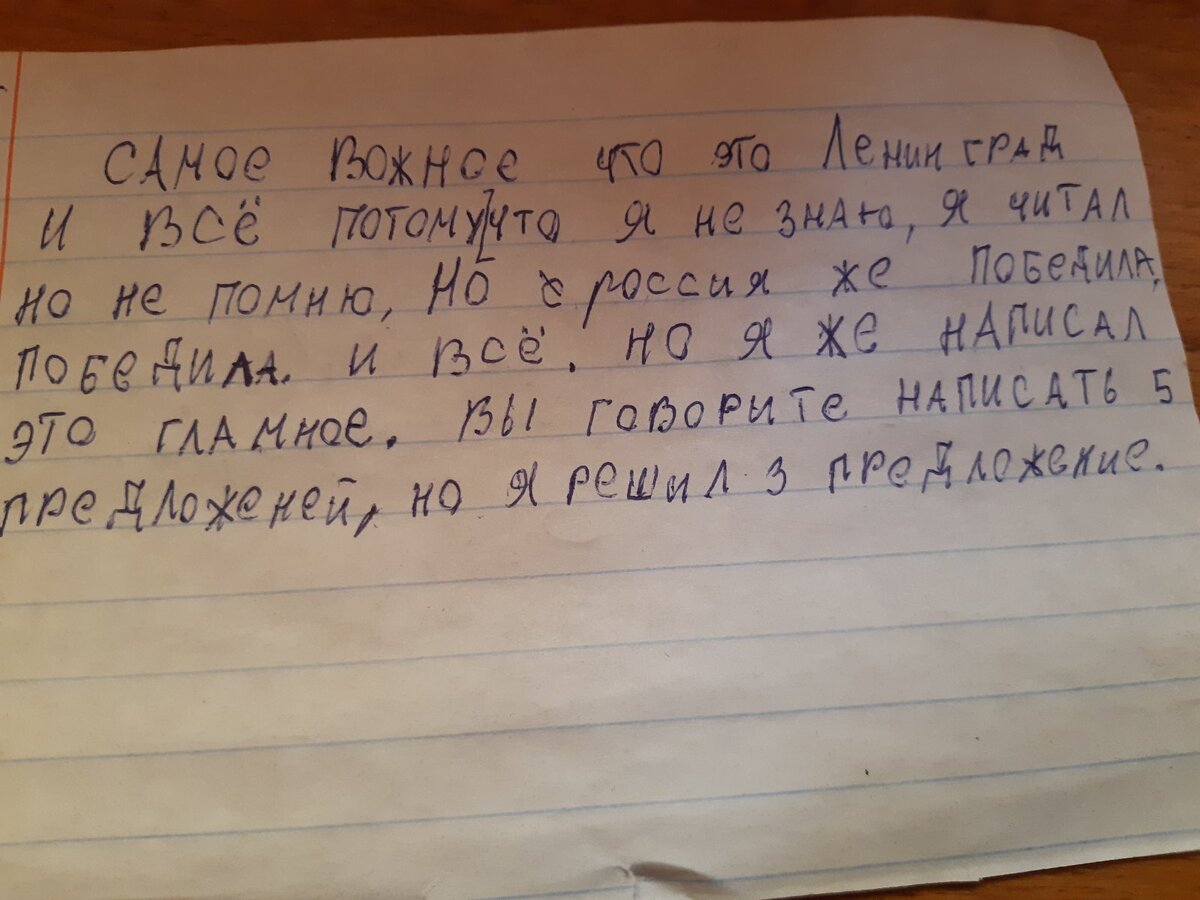 Самое вожное что это Ленинград
и всё потому что я не знаю, я читал
но не помню, но россия же победила,
победила. и всё. но я же написал
это гламное. вы говорите написать 5
предложеней, но я решил 3 предложение.